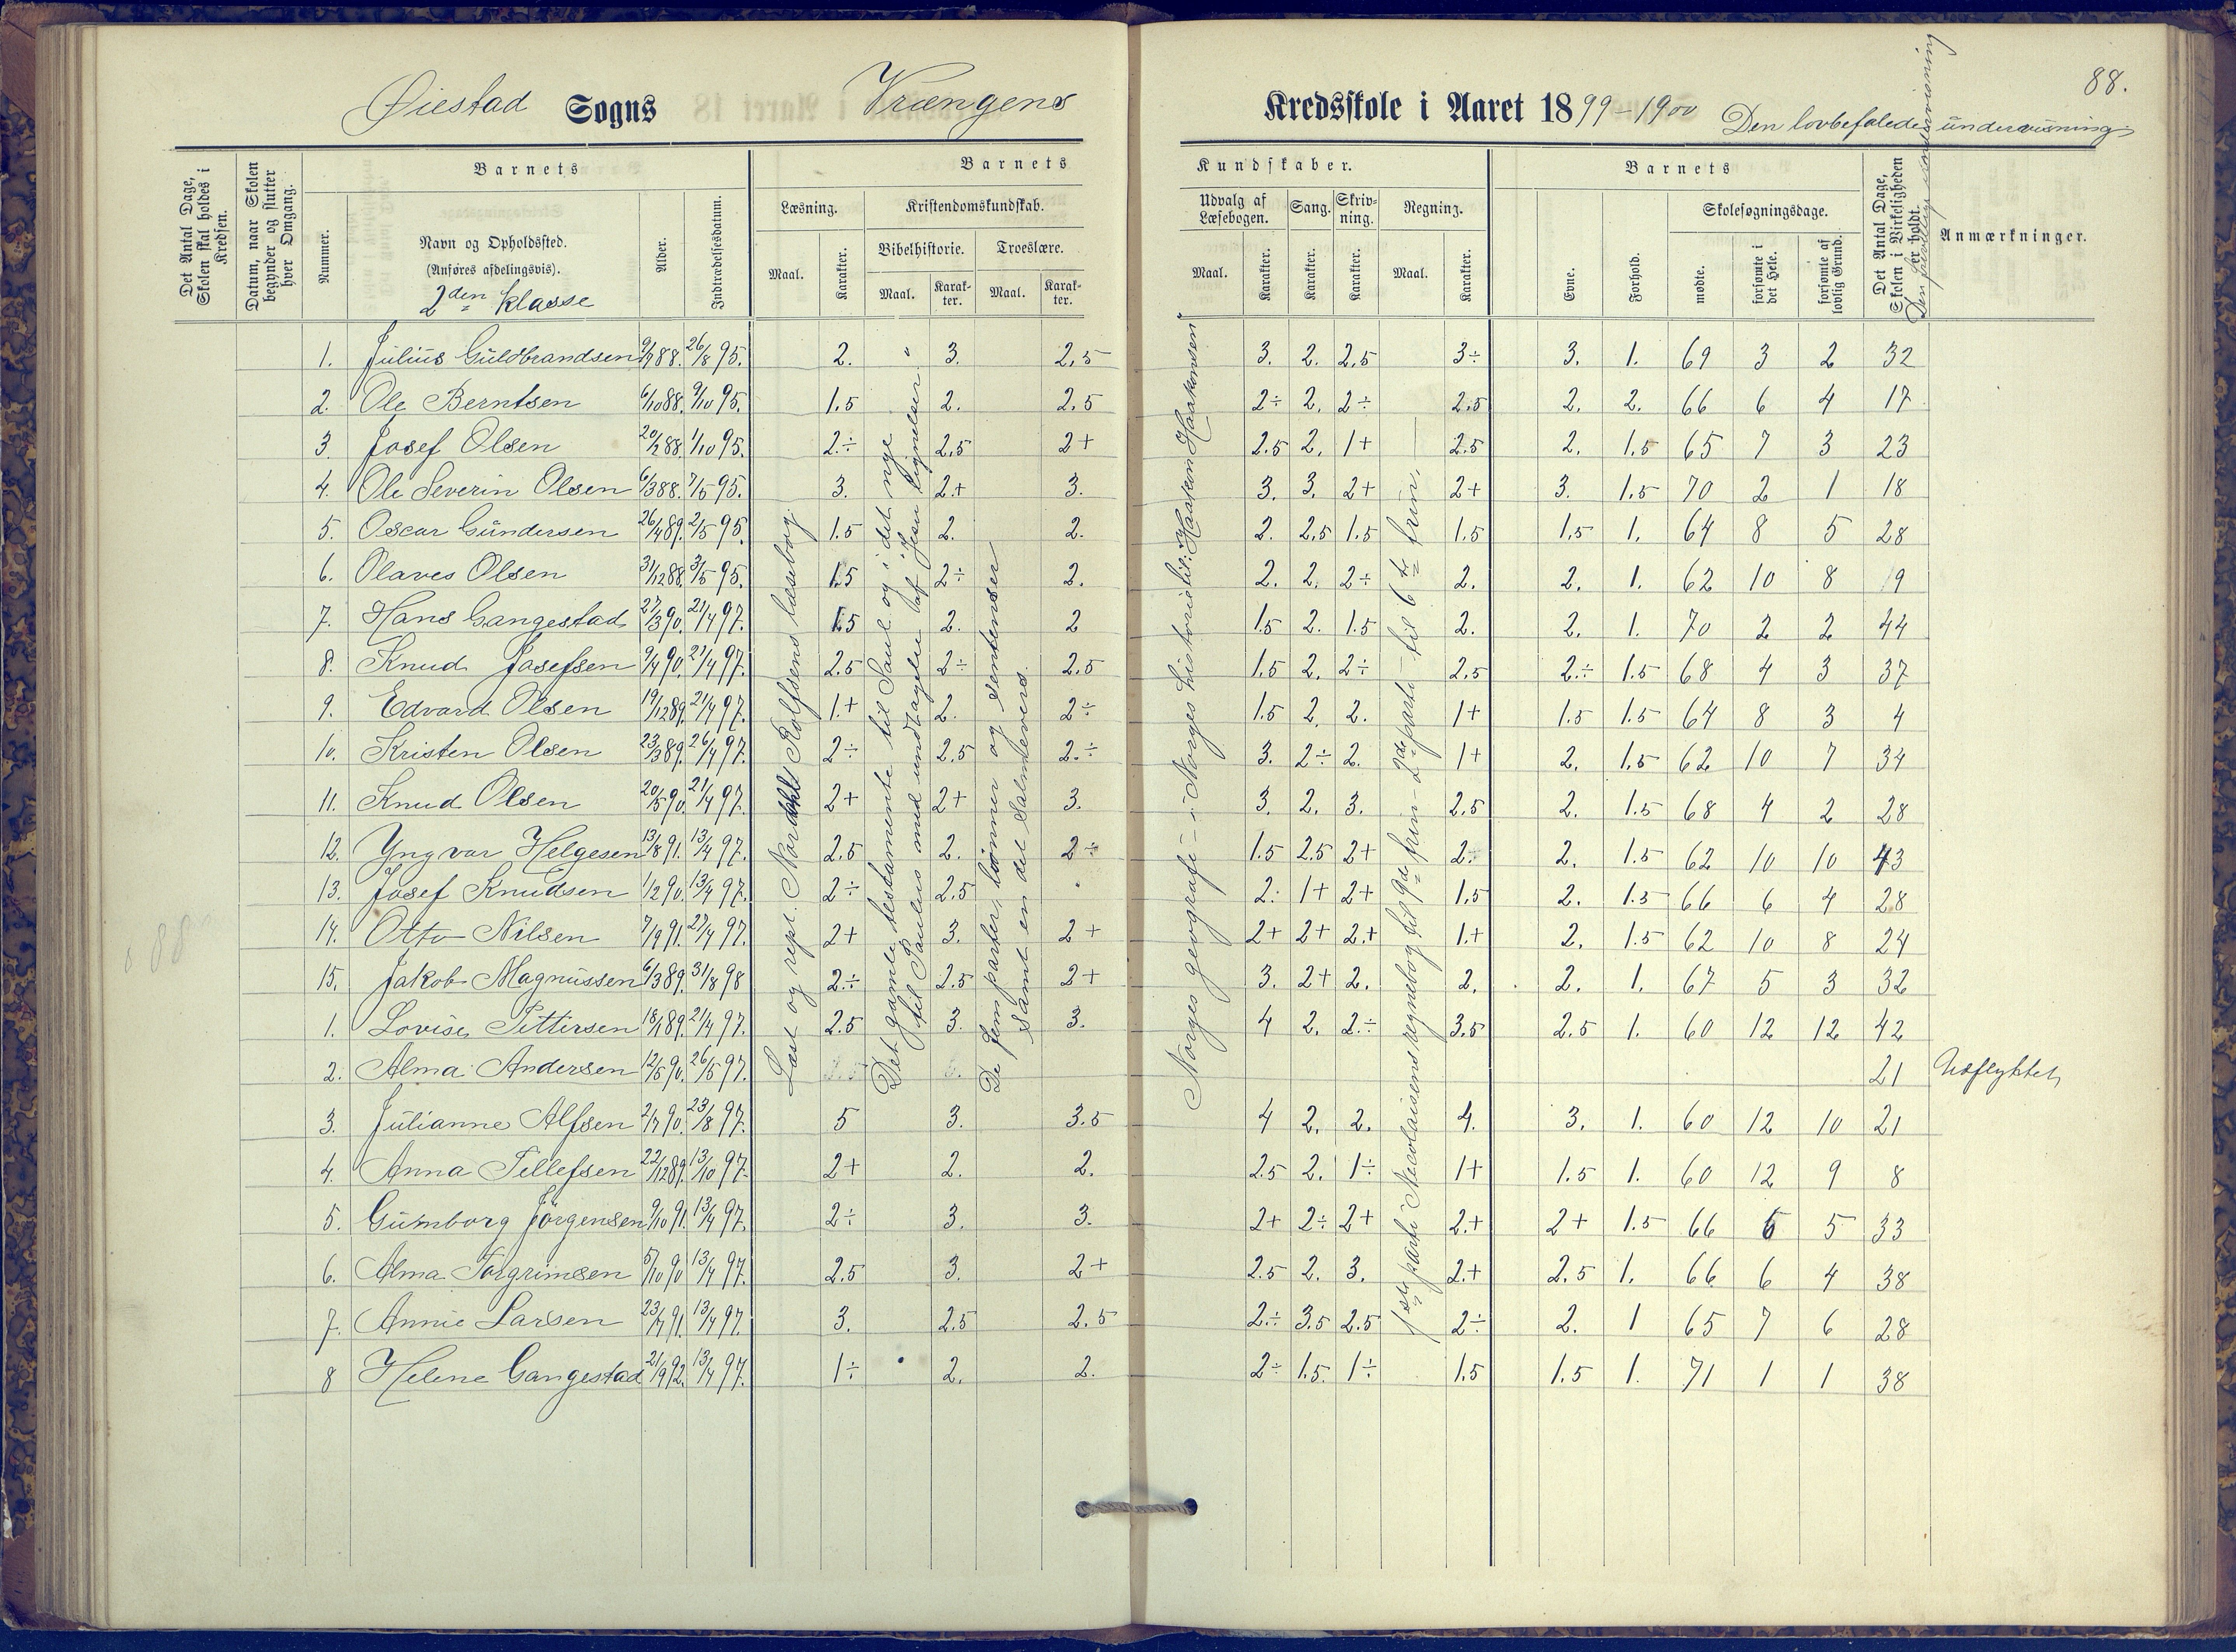 88.
Øiestad Sogns Vrængens Kredsskole i Aaret 1899-1900 Den lovbefalede undervisning
Det Antal Dage, Skolen skal holdes i Kredsen.
Datum, naar Skolen begynder og slutter hver Omgang.
Barnets
Nummer.
Navn og Opholdssted.
(Anføres afdelingsvis).
2den klasse
Alder.
Indtrædelsesdatum.
Barnets Kundskaber.
Læsning. Maal. Karakter.
Kristendomskundskab.
Bibelhistorie. Maal. Karakter.
Troeslære. Maal. Karakter.
Udvalg af Læsebogen. Maal. Karakter.
Sang. Karakter.
Skrivning. Karakter.
Regning. Maal. Karakter.
Barnets
Evne. Forhold.
Skolesøgningsdage.
mødte. forsømte i det Hele. forsømte af lovlig Grund.
Det Antal Dage, Skolen i Virkeligheden er holdt.
Den frivillige undervisning
Anmærkninger.
1. Julius Guldbrandsen 9/7 88. 26/8 95. 2. " 3. 2,5 3. 2. 2,5 3÷ 3. 1. 69 3 2 32
2. Ole Berntsen 6/10 88. 9/10 95. 1.5 2. 2.5 2÷ 2. 2÷ 2.5 2. 2. 66 6 4 17
3. Josef Olsen 20/2 88. 1/10 95. 2÷ 2,5 2+ 2.5 2. 1+ 2.5 2. 1.5 65 7 3 23
4. Ole Severin Olsen 6/3 88. 7/5 95. 3. 2+ 3. 3. 3. 2+ 2+ 3. 1.5 70 2 1 18
5. Oscar Gundersen 26/4 89. 2/5 95. 1.5 2. 2. 2. 2,5 1.5 1,5 1,5 1. 64 8 5 28
6. Olaves Olsen 31/12 88. 3/5 95. 1.5 2÷ 2. 2. 2. 2÷ 2. 2. 1. 62 10 8 19
7. Hans Gangestad 27/3 90. 21/4 97. 1.5 2. 2 1.5 2. 1.5 2. 2. 1. 70 2 2 44
8. Knud Josefsen 9/4 90. 21/4 97. 2.5 2÷ 2.5 1.5 2. 2÷ 2,5 2÷ 1.5 68 4 3 37
9. Edvard Olsen 19/12 89. 21/4 97. 1.+ 2. 2÷ 1.5 2. 2. 1+ 1.5 1.5 64 8 3 4
10. Kristen Olsen 23/3 89. 26/4 97. 2÷ 2,5 2÷ 3. 2÷ 2. 1+ 2. 1.5 62 10 7 34
11. Knud Olsen 20/5 90. 21/4 97. 2+ 2+ 3. 3. 2. 3. 2,5 2. 1.5 68 4 2 28
12. Yngvar Helgesen 13/8 91. 13/4 97. 2,5 2. 2÷ 1.5 2.5 2+ 2. 2. 1.5 62 10 10 43
13. Josef Knudsen 1/2 90. 13/4 97. 2÷ 2.5 " 2. 1+ 2+ 1,5 2. 1.5 66 6 4 28
14. Otto Nilsen 7/9 91. 27/4 97. 2+ 3. 2+ 2+ 2+ 2.+ 1.+ 2. 1.5 62 10 8 24
15. Jakob Magnussen 6/3 89. 31/8 98 2÷ 2.5 2+ 3. 2+ 2. 2. 2. 1. 67 5 3 32
1. Lovise Pettersen 18/1 89. 21/4 97. 2.5 3. 3. 4 2. 2.÷ 3.5 2.5 1. 60 12 12 42
2. Alma Andersen 12/5 90. 26/5 97. 21 Udflyttet
3. Julianne Alfsen 2/7 90. 23/8 97. 5 3. 3.5 4 2. 2. 4. 3. 1. 60 12 10 21
4. Anna Tellefsen 22/12 89. 13/10 97. 2+ 2. 2. 2.5 2. 1÷ 1+ 1.5 1. 60 12 9 8
5. Gunborg Jörgensen 9/10 91. 13/4 97. 2÷ 3. 3. 2+ 2÷ 2+ 2.+ 2+ 1.5 66 6 5 33
6. Alma Torgrimsen 5/10 90 13/4 97. 2.5 3. 2+ 2.5 2. 3. 2.+ 2.5 1. 66 6 4 38
7. Annie Larsen 23/7 91. 13/4 97. 3. 2.5 2.5 2÷ 3.5 2.5 2÷ 2. 1 65 7 6 28
8 Helene Gangestad 21/9 92. 13/4 97. 1÷ 2. 2. 2÷ 1.5. 1÷ 1.5 1.5 1. 71 1 1 38
Læst og rept. Nordahl Rolfsens læsebog
Det gamle testamente til Saul og i det nye
til Paulus med undtagelse af Jesu lignelser.
De fem parter, bønner og sentenser
samt en del Salmevers.
Norges geografi – i Norges historie til: "Haakon Haakonsen"
1ste parti Nicolaisens regnebog til 9de trin – 2det parti – til 6te trin.